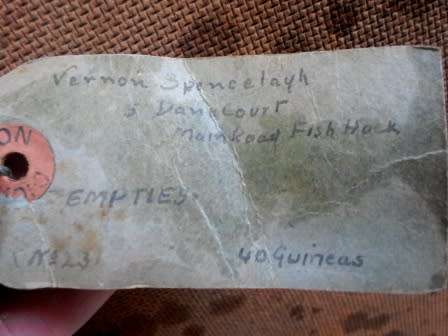 Vernon Spencelayh
5 Danacourt
Main Road Fish Hoek
ON
EMPTIES.
(No 23)
40 Guineas